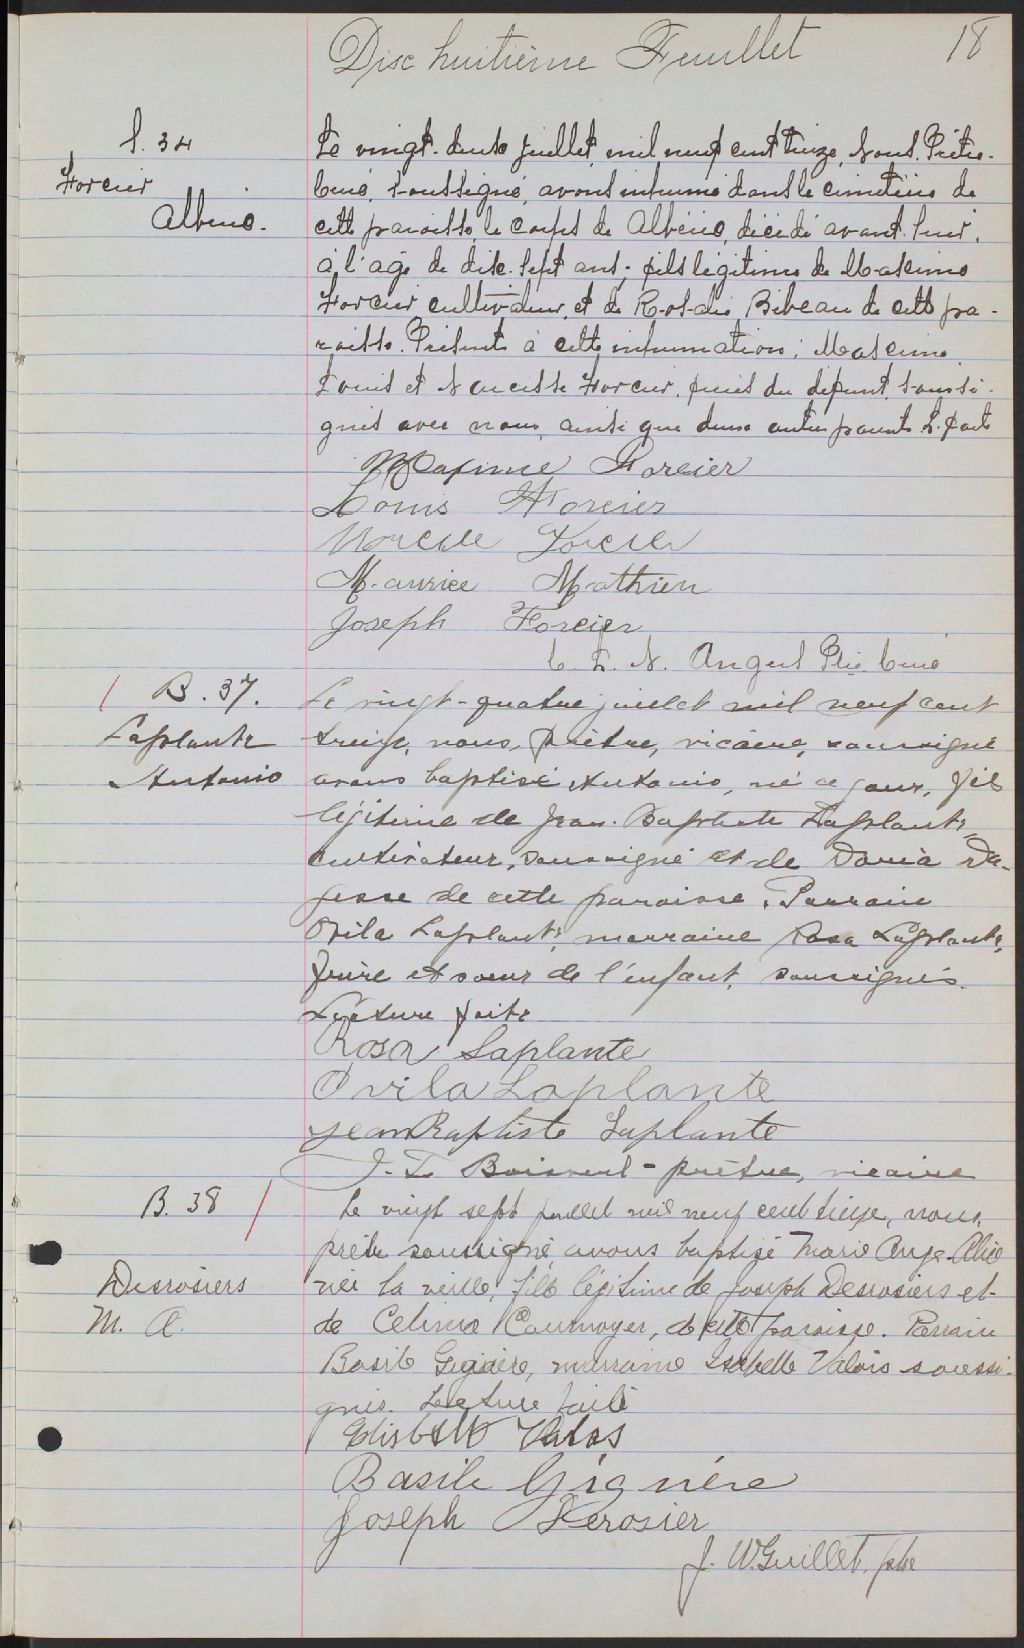 Disc huitième Feuillet 18
S. 34
Forcier
Albéric.
Le vingt-deux juillet mil neuf cent treize, Nous, Prêtre-
Curé, soussigné, avons inhumé dans le cimetière de
cette paroisse, le corps de Albéric, décédé avant-hier,
à l'âge de dix-sept ans; fils légitime de Maxime
Forcier cultivateur, et de Rosalie Bibeau de cette pa-
roisse. Présents à cette inhumation: Maxime
Louis et Narcisse Forcier, du défunt, soussi-
gnés avec nous, ainsi que deux autres parents L. faite
Maxime Forcier
Louis Forcier
Narcisse Forcier
Maurice Mathieu
Joseph Forcier
C. L. N. Ptre. Curé
B. 37.
Laplante
Antonio
Le vingt-quatre juillet mil neuf cent
treize, nous, prêtre, vicaire, soussigné
avons baptisé Antonio, né ce jour, fils
légitime de Jean-Baptiste Laplante,
cultivateur, soussigné et de
de cette paroisse. Parrain
Ovila Laplante, marraine Rosa Laplante,
frère et soeur de l'enfant, soussignés.
Lecture faite
Rosa Laplante
Ovila Laplante
Jean Baptiste Laplante
J. T. Boisvert - prêtre, vicaire
B. 38
Desrosiers
M. A.
Le vingt sept juillet mil neuf cent treize, nous,
prêtre soussigné avons baptisé Marie Ange-Alice
née la veille, fille légitime de Joseph Desrosiers et
de Celina Cournoyer, de cette paroisse. Parrain
Basile, marraine Isabelle Valois soussi-
gnés. Lecture faite
Basile Gignère
Joseph Derosier
J. W. Guillet, ptre